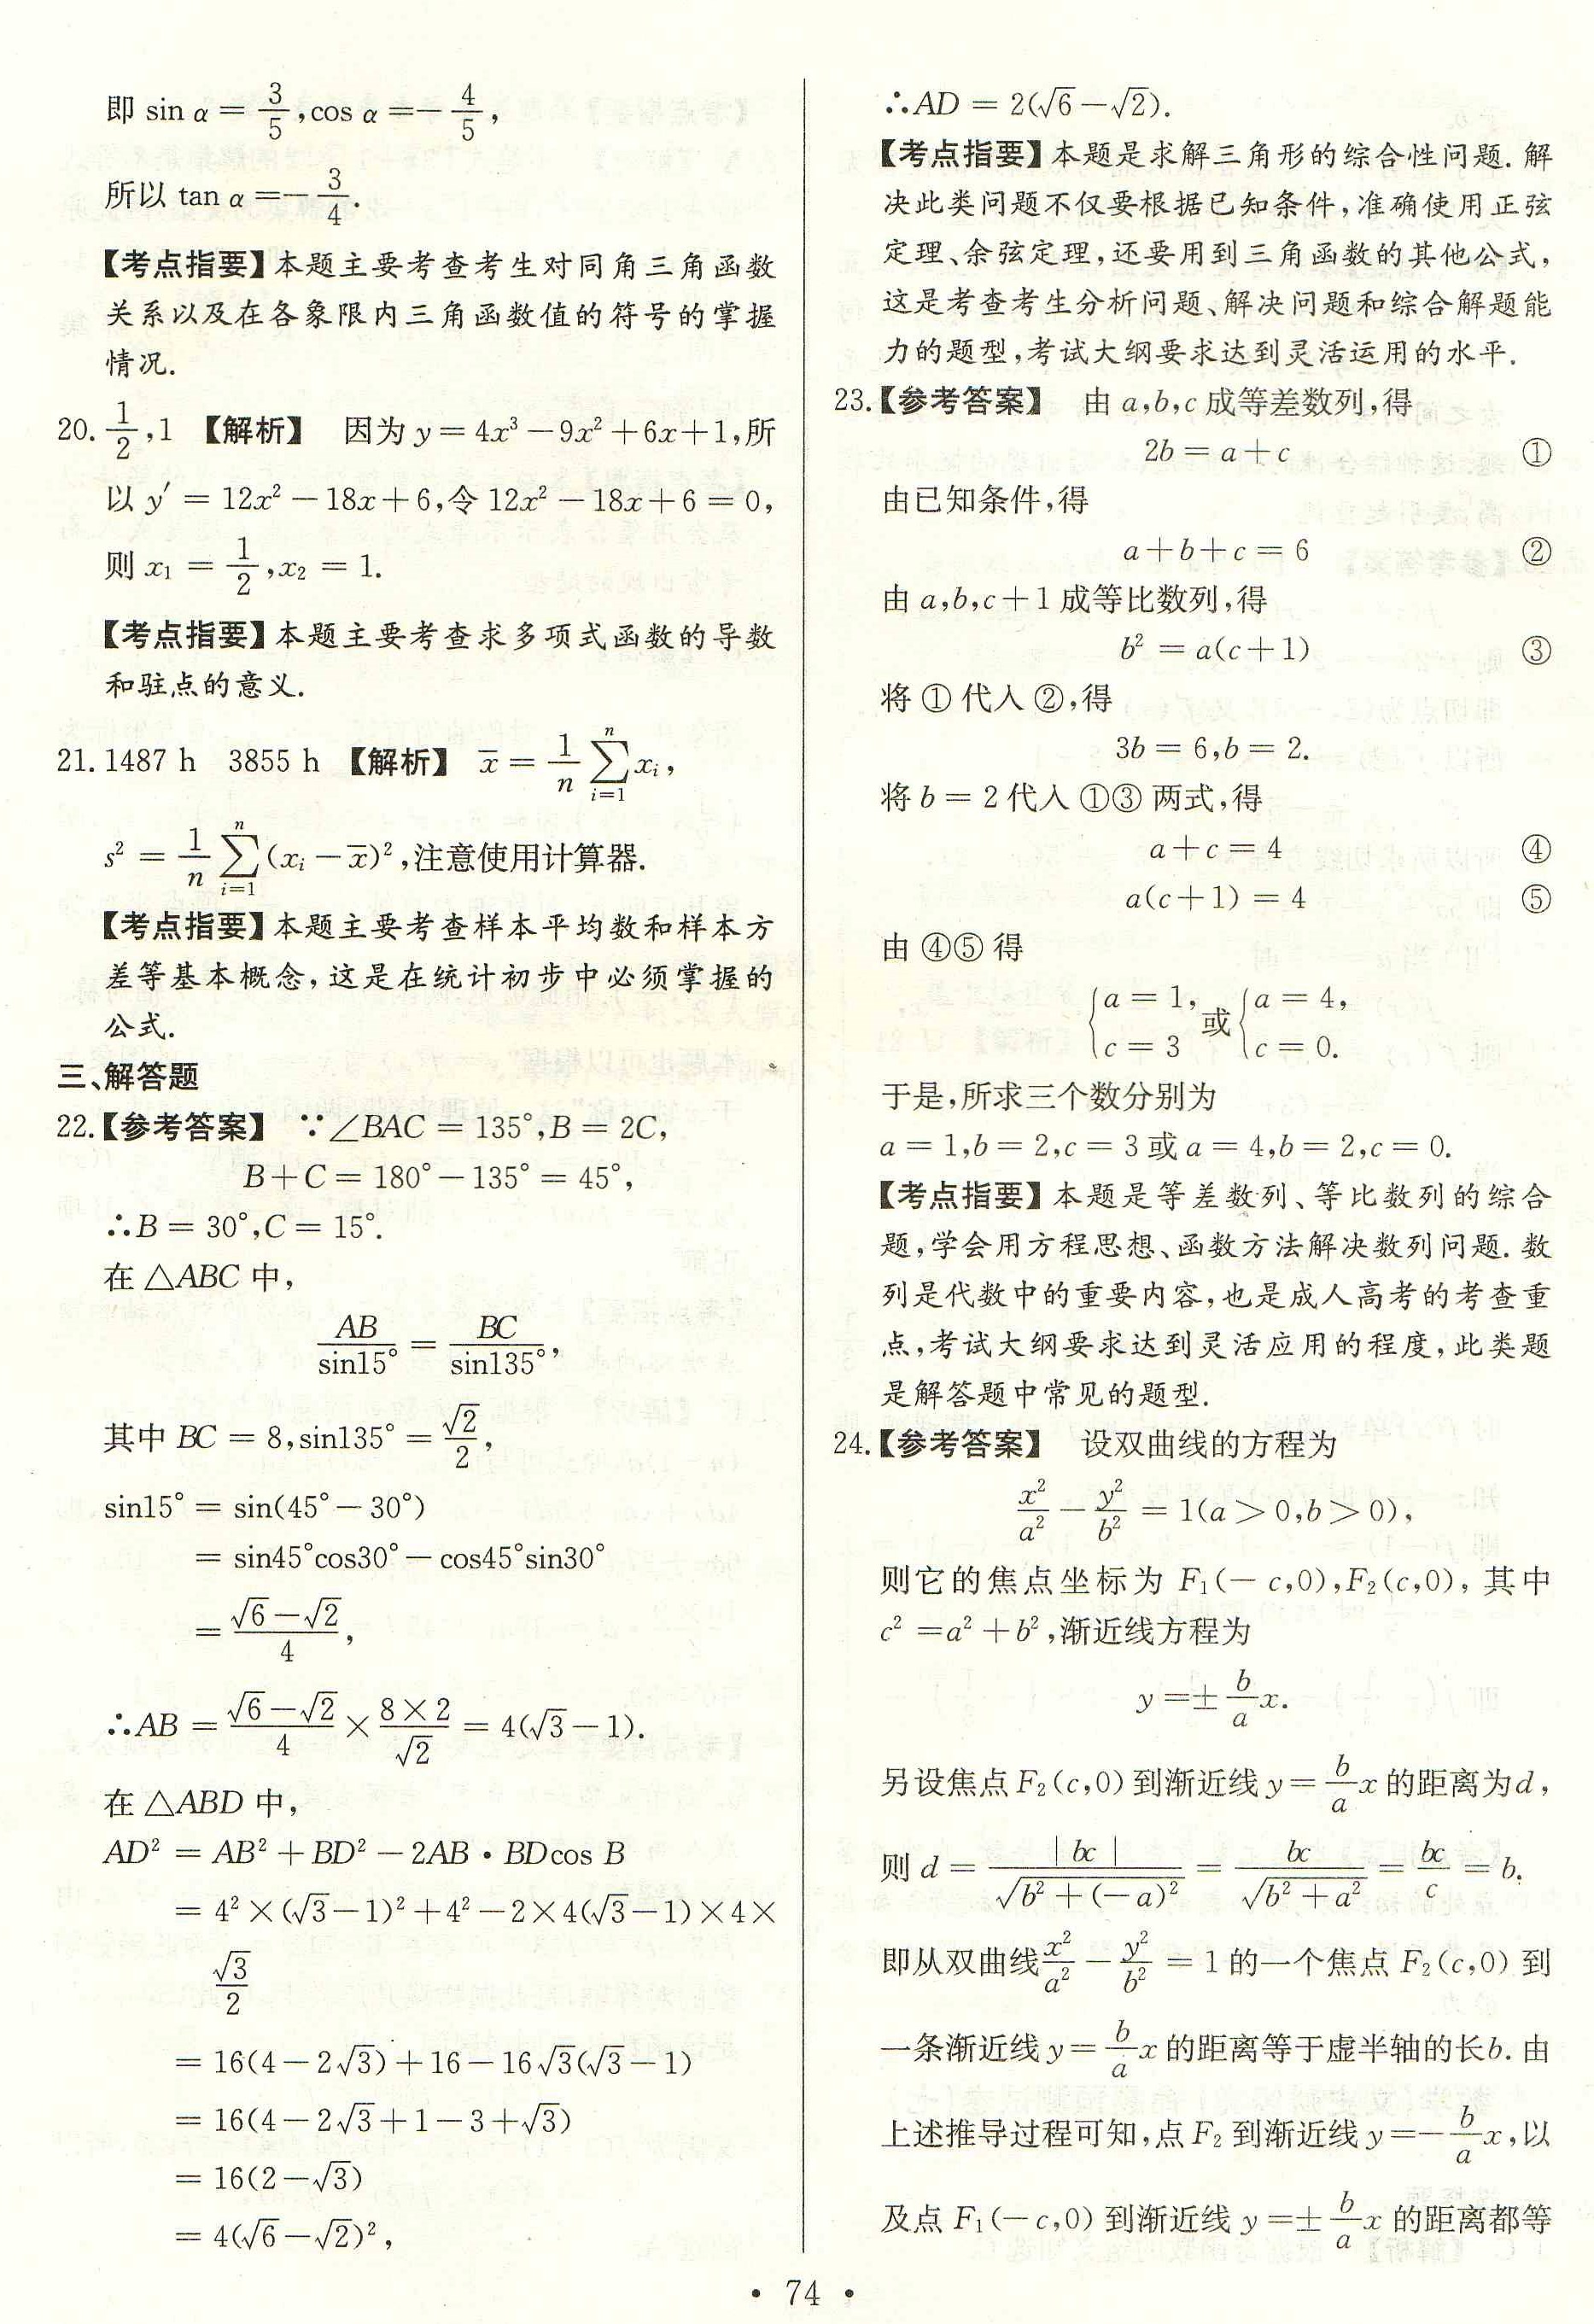 即 sin α = 3/5 ,cos α =− 4/5 ,
所以 tan α =− 3/4 .
【考点指要】本题主要考查考生对同角三角函数
关系以及在各象限内三角函数值的符号的掌握
情况.
20. 1/2 ,1 【解析】 因为 y = 4x³ − 9x² + 6x + 1,所
以 y′ = 12x² − 18x + 6,令 12x² − 18x + 6 = 0,
则 x₁ = 1/2 ,x₂ = 1.
【考点指要】本题主要考查求多项式函数的导数
和驻点的意义.
21. 1487 h 3855 h 【解析】 x̄ = 1/n ∑_{i=1}^{n} xᵢ ,
s² = 1/n ∑_{i=1}^{n} (xᵢ − x̄)² ,注意使用计算器.
【考点指要】本题主要考查样本平均数和样本方
差等基本概念,这是在统计初步中必须掌握的
公式.
三、解答题
22.【参考答案】 ∵∠BAC = 135°,B = 2C,
B+C = 180° − 135° = 45°,
∴B = 30°,C = 15°.
在 △ABC 中,
AB/sin15° = BC/sin135° ,
其中 BC = 8,sin135° = √2/2 ,
sin15° = sin(45° − 30°)
= sin45°cos30° − cos45°sin30°
= (√6−√2)/4 ,
∴AB = (√6−√2)/4 × (8×2)/√2 = 4(√3−1).
在 △ABD 中,
AD² = AB² + BD² − 2AB · BDcos B
= 4² × (√3−1)² + 4² − 2×4(√3−1)×4×
√3/2
= 16(4−2√3)+16−16√3(√3−1)
= 16(4−2√3+1−3+√3)
= 16(2−√3)
= 4(√6−√2)² ,
∴AD = 2(√6−√2).
【考点指要】本题是求解三角形的综合性问题.解
决此类问题不仅要根据已知条件,准确使用正弦
定理、余弦定理,还要用到三角函数的其他公式,
这是考查考生分析问题、解决问题和综合解题能
力的题型,考试大纲要求达到灵活运用的水平.
23.【参考答案】 由 a,b,c 成等差数列,得
2b = a+c ①
由已知条件,得
a+b+c = 6 ②
由 a,b,c+1 成等比数列,得
b² = a(c+1) ③
将 ① 代入 ②,得
3b = 6,b = 2.
将 b = 2 代入 ①③ 两式,得
a+c = 4 ④
a(c+1) = 4 ⑤
由 ④⑤ 得
{a = 1, 或 {a = 4,
{c = 3 {c = 0.
于是,所求三个数分别为
a = 1,b = 2,c = 3 或 a = 4,b = 2,c = 0.
【考点指要】本题是等差数列、等比数列的综合
题,学会用方程思想、函数方法解决数列问题.数
列是代数中的重要内容,也是成人高考的考查重
点,考试大纲要求达到灵活应用的程度,此类题
是解答题中常见的题型.
24.【参考答案】 设双曲线的方程为
x²/a² − y²/b² = 1(a > 0,b > 0),
则它的焦点坐标为 F₁(− c,0),F₂(c,0), 其中
c² = a² + b² ,渐近线方程为
y =± b/a x.
另设焦点 F₂(c,0) 到渐近线 y = b/a x 的距离为 d ,
则 d = | bc |/√(b²+(−a)²) = bc/√(b²+a²) = bc/c = b.
即从双曲线 x²/a² − y²/b² = 1 的一个焦点 F₂(c,0) 到
一条渐近线 y = b/a x 的距离等于虚半轴的长 b. 由
上述推导过程可知,点 F₂ 到渐近线 y =− b/a x ,以
及点 F₁(− c,0) 到渐近线 y =± b/a x 的距离都等
· 74 ·